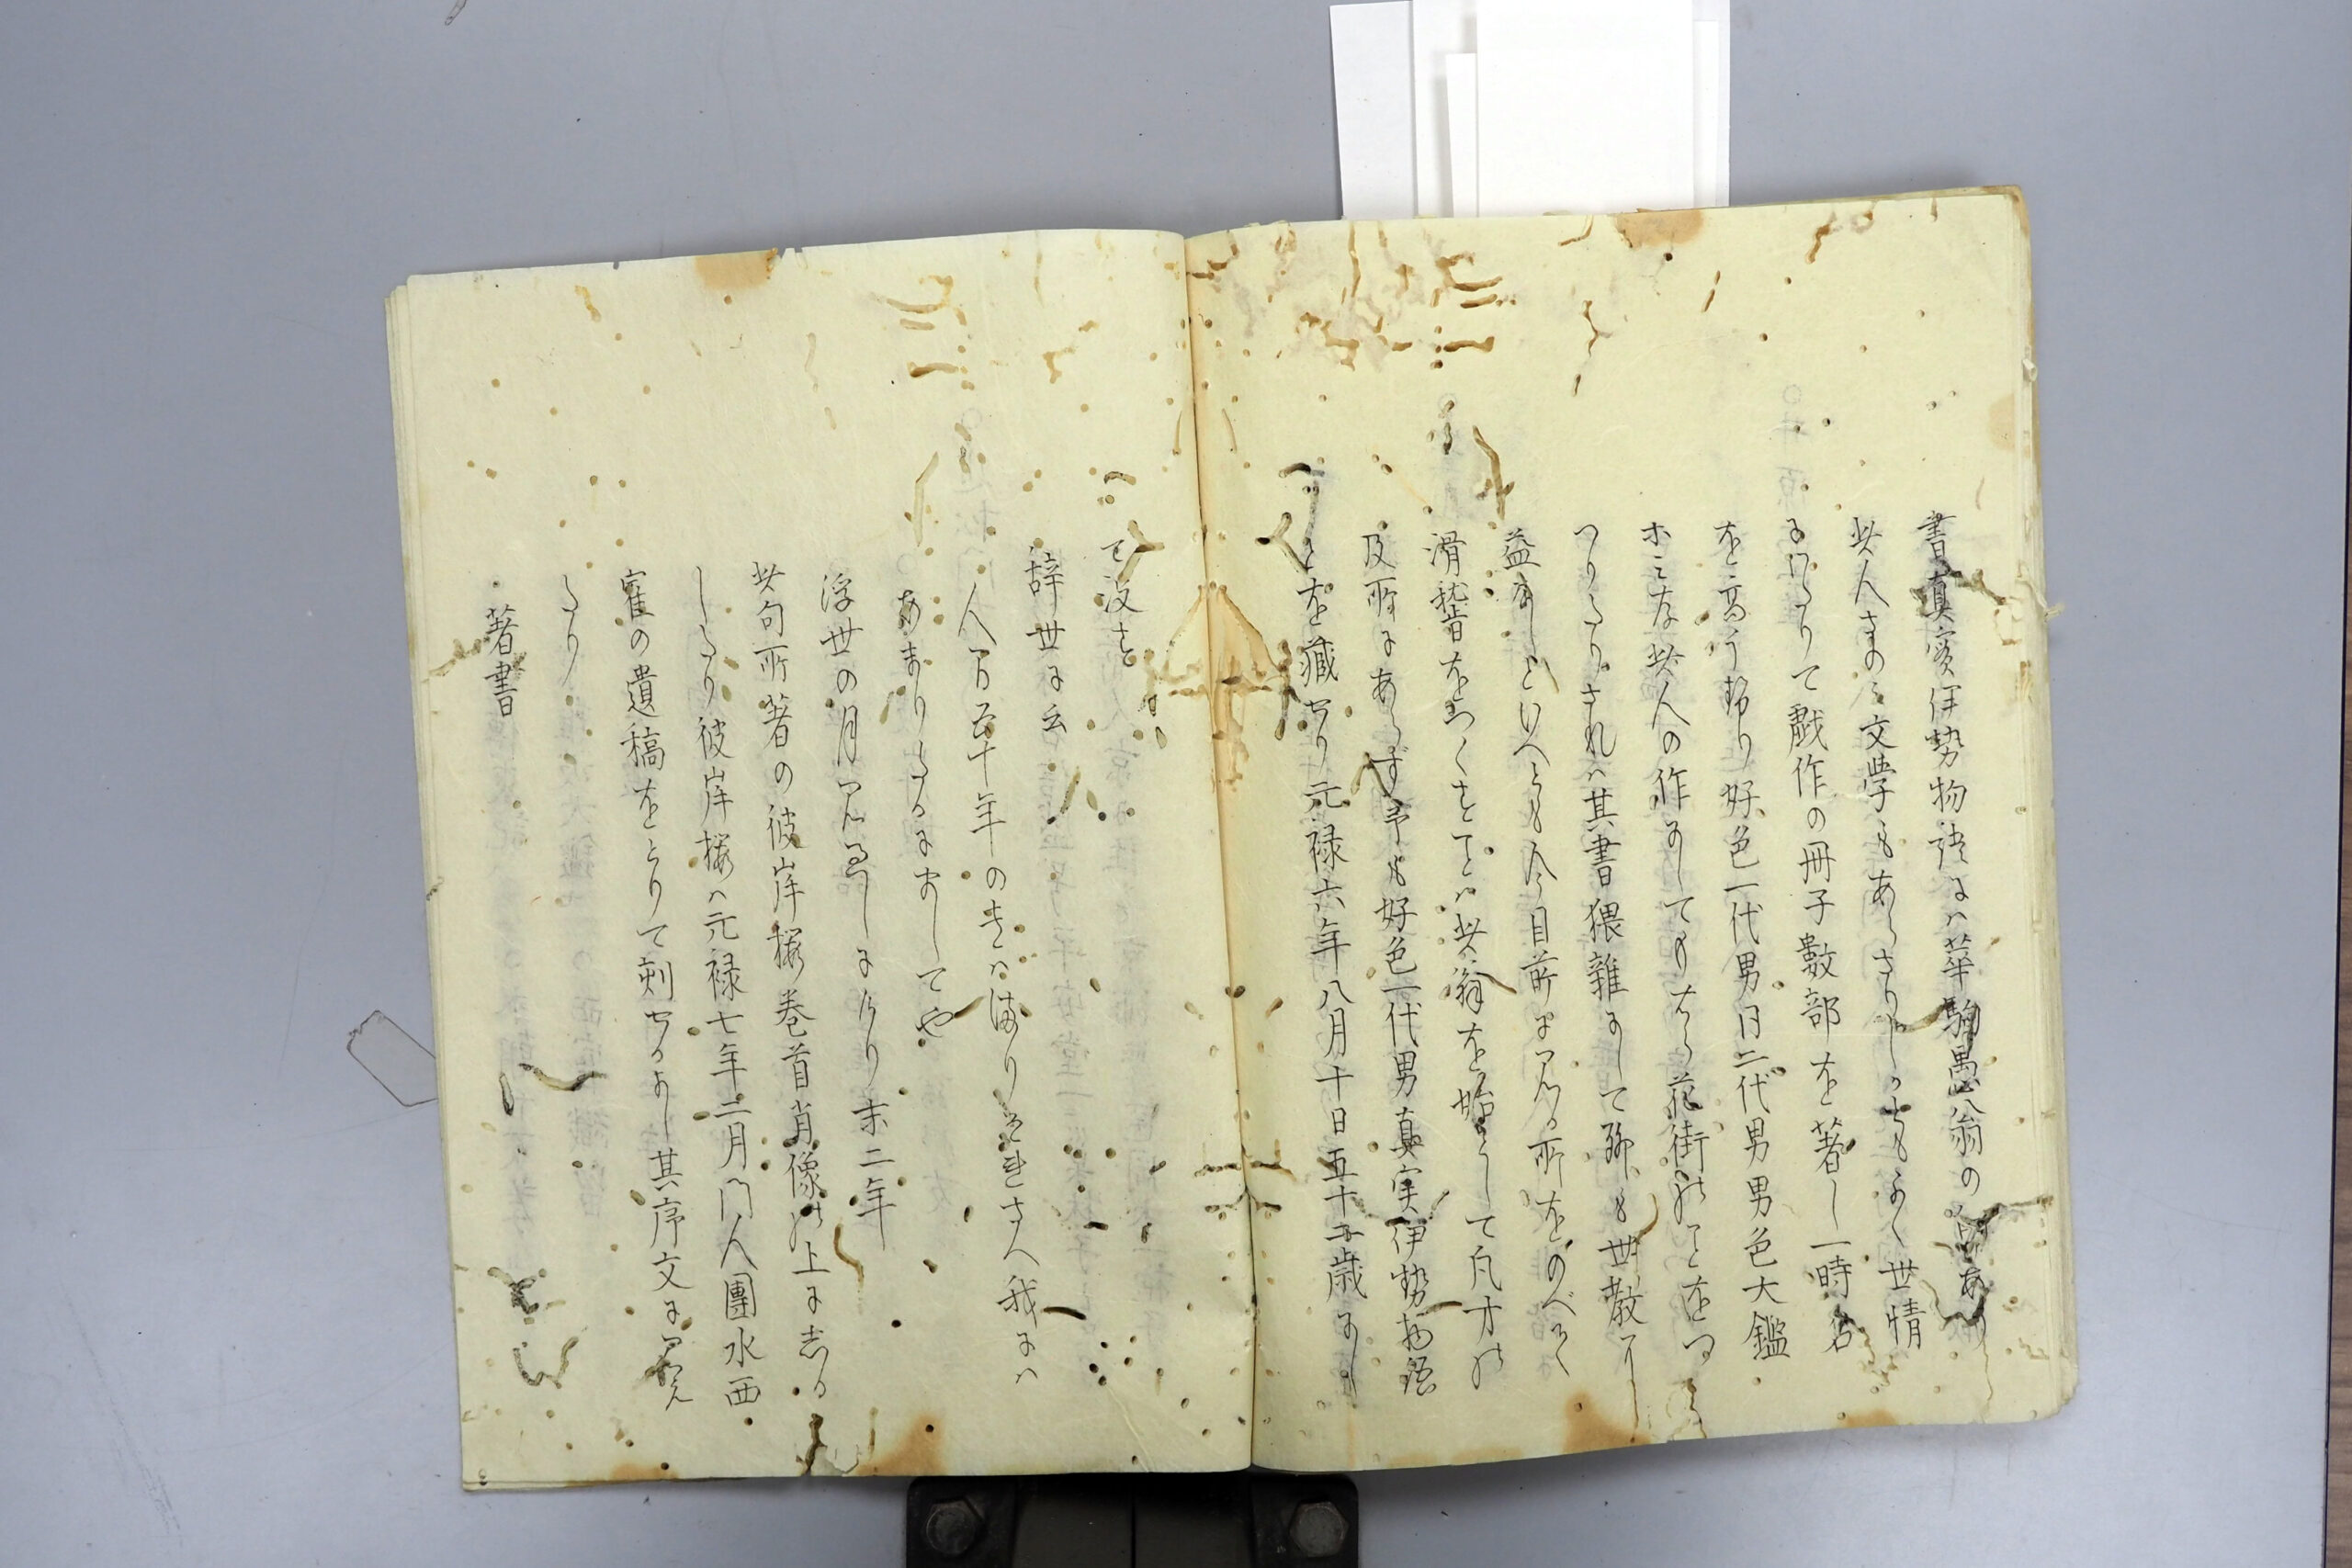 書真実伊勢物語に八華駒愚翁の
此人さのみ文学もあらさりしかともよく世情
にわたりて戯作の冊子數部を著し一時名
を高う
好色一代男同二代男男色大鑑
ホミな此人の作にして
花街の
をつ
つりたりされハ其書猥雑にして
も世教に
益なしといへとも今目前に見る所をのべ
滑稽をつくすことハ此翁を始として凡才の
及所にあらず予も好色一代男真実伊勢物語
を藏せり元禄六年八月十日五十二歳にし
て没す
辞世に云
人間五十年の
さへ我にハ
あまりたるにましてや
浮世の月見過しにけり末二年
此句所著の彼岸桜巻首肖像の上にしる
したり彼岸桜ハ元禄七年二月門人團水西
寉の遺稿をとりて刻せるよし其序文に見え
たり
著書